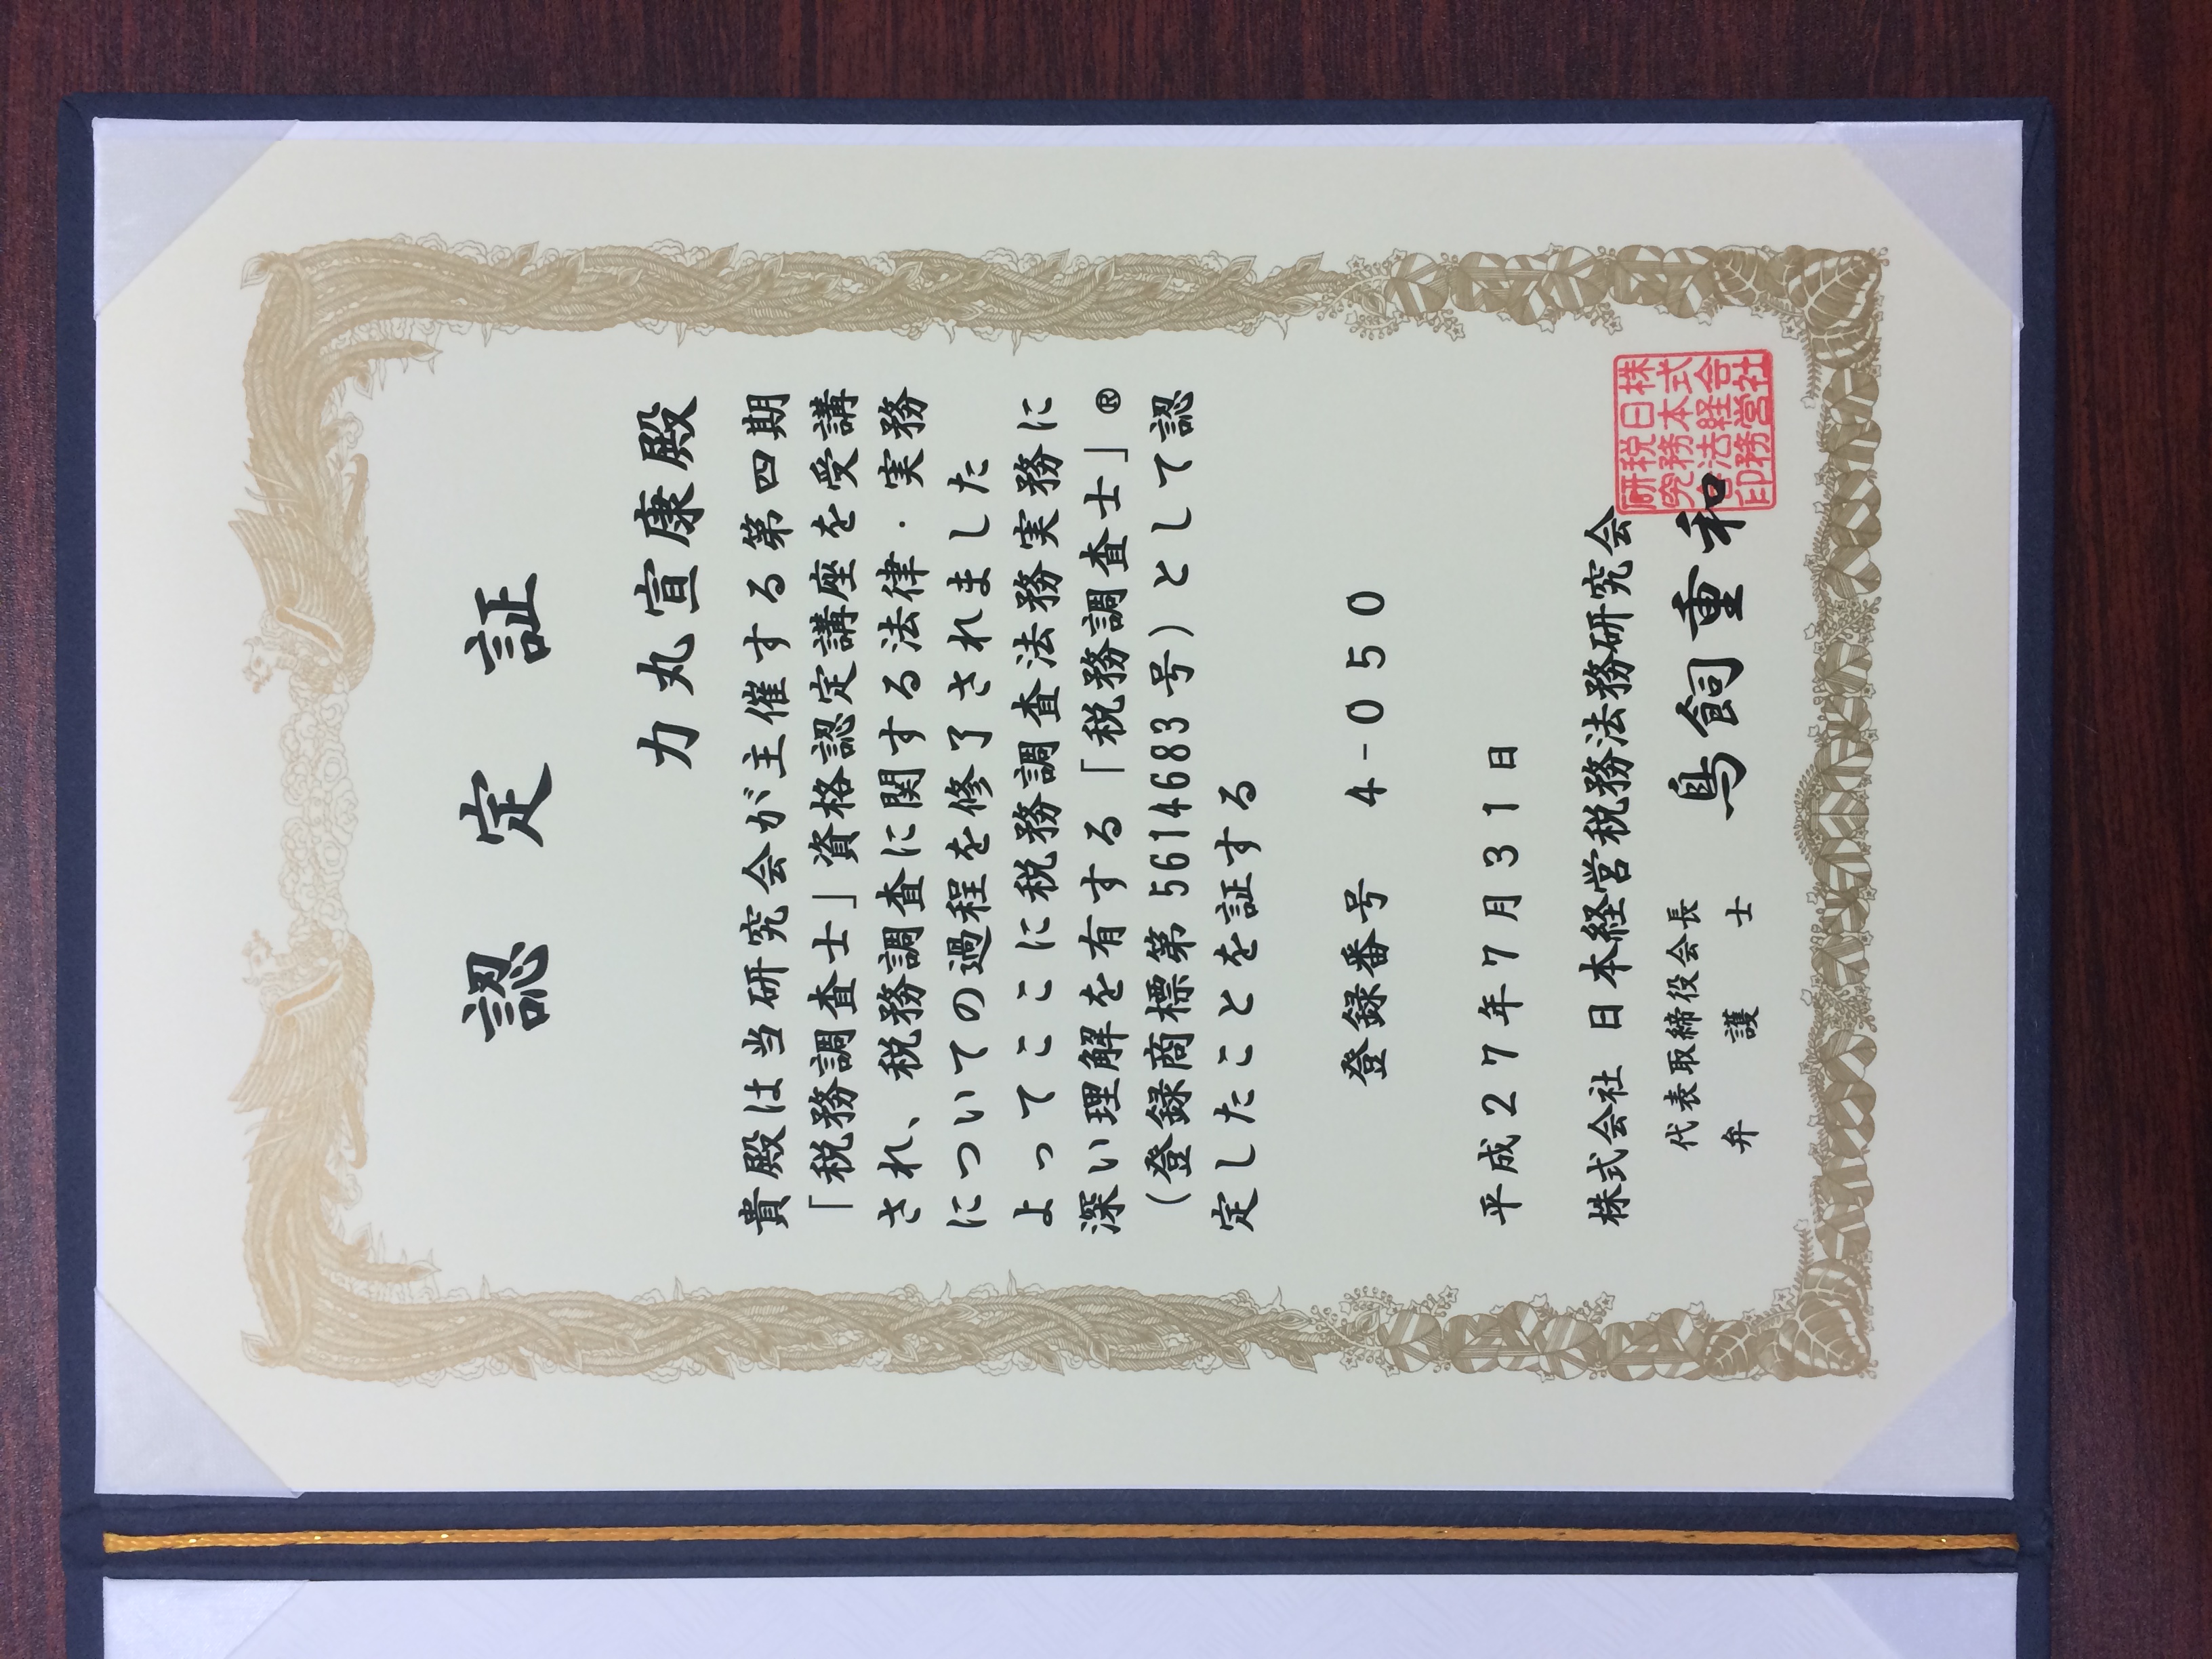 認定証
力丸宣康殿
貴殿は当研究会が主催する第四期
「税務調査士」資格認定講座を受講
され、税務調査に関する法律・実務
についての過程を修了されました
よってここに税務調査法務実務に
深い理解を有する「税務調査士」®
(登録商標第5614683号)として認
定したことを証する
登録番号 4-050
平成27年7月31日
株式会社 日本経営税務法務研究会
代表取締役会長
弁護士 鳥飼重和
株式会社
日本経営
税務法務
研究会印